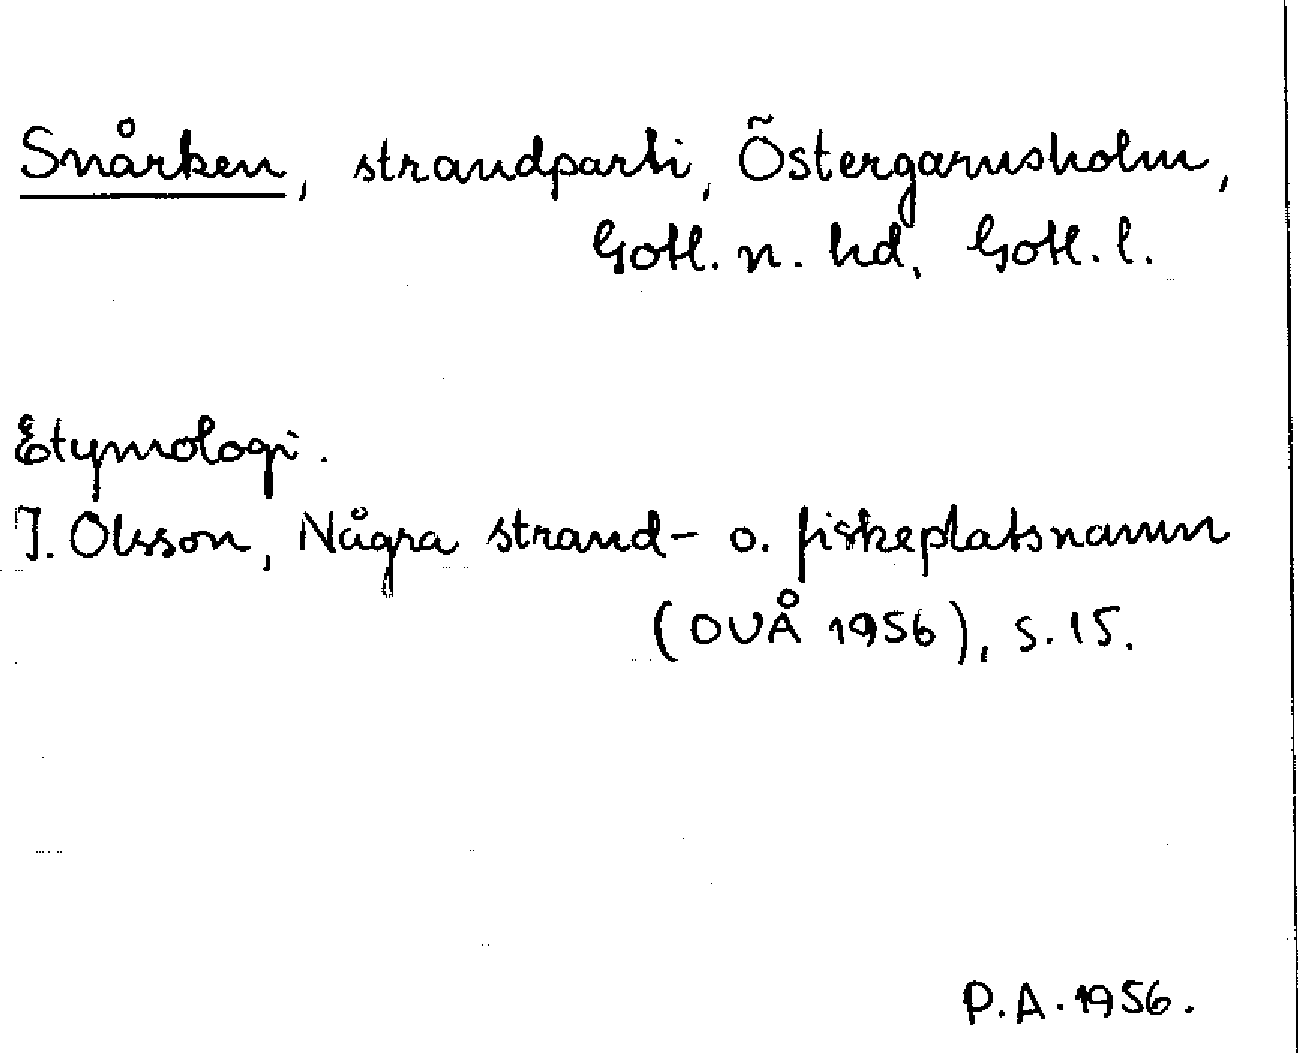 Snårken, strandparti, Östergarnsholm,
Gotl. n. hd, Gotl. l.
Etymologi.
I. Olsson, Några strand- o. fiskeplatsnamn
(OVÅ 1956), s. 15.
P.A. 1956.